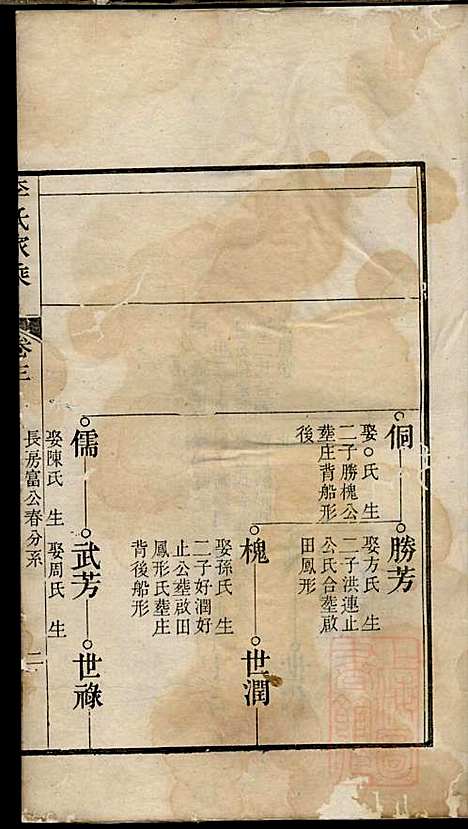 侗
娶○氏 生
二子勝槐公
塟庄背船形
後
勝芳
娶方氏 生
二子洪連止
公氏合塟啟
田鳳形
槐
娶孫氏 生
二子好潤好
止公塟啟田
鳳形氏塟庄
背後船形
世潤
儒
娶陳氏 生
武芳
娶周氏 生
世祿
長房富公春分系
二
李氏家乘
卷三